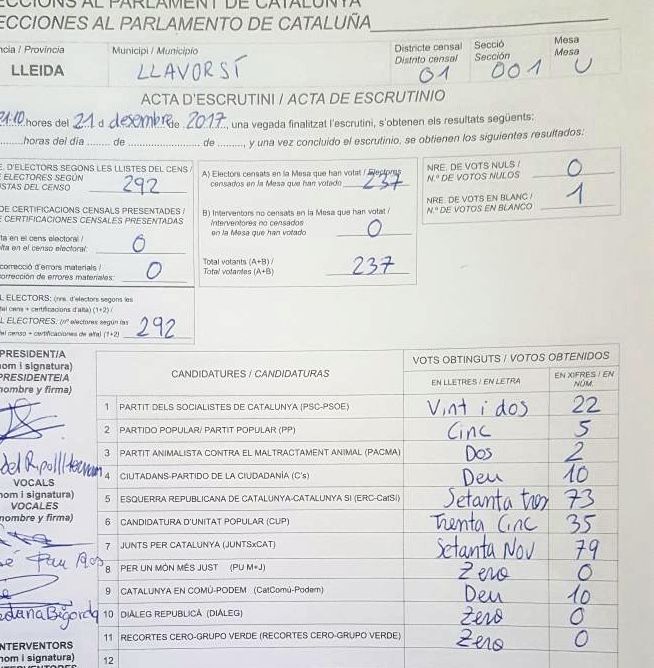 ECCIONS AL PARLAMENT DE CATALUNYA
ECCIONES AL PARLAMENTO DE CATALUÑA
ncia / Provincia
LLEIDA
Municipi / Municipio
LLAVORSÍ
Districte censal
Distrito censal
01
Secció
Sección
001
Mesa
Mesa
U
ACTA D'ESCRUTINI / ACTA DE ESCRUTINIO
21:10 hores del 21 d desembre de 2017, una vegada finalitzat l'escrutini, s'obtenen els resultats següents:
horas del día de de , y una vez concluido el escrutinio, se obtienen los siguientes resultados:
E. D'ELECTORS SEGONS LES LLISTES DEL CENS /
ELECTORES SEGÚN
ISTAS DEL CENSO
292
DE CERTIFICACIONS CENSALS PRESENTADES /
E CERTIFICACIONES CENSALES PRESENTADAS
lta en el cens electoral /
lta en el censo electoral:
0
correcció d'errors materials /
corrección de errores materiales:
0
L ELECTORS: (nre. d'electors segons les
del cens + certificacions d'alta) (1+2) /
L ELECTORES: (nº electores según las
del censo + certificaciones de alta) (1+2)
292
A) Electors censats en la Mesa que han votat / Electores
censados en la Mesa que han votado
237
B) Interventors no censats en la Mesa que han votat /
Interventores no censados
en la Mesa que han votado
0
Total votants (A+B) /
Total votantes (A+B)
237
NRE. DE VOTS NULS /
N.º DE VOTOS NULOS
0
NRE. DE VOTS EN BLANC /
N.º DE VOTOS EN BLANCO
1
PRESIDENT/A
nom i signatura)
PRESIDENTE/A
nombre y firma)
VOCALS
nom i signatura)
VOCALES
nombre y firma)
INTERVENTORS
nom i signatura)
CANDIDATURES / CANDIDATURAS
VOTS OBTINGUTS / VOTOS OBTENIDOS
EN LLETRES / EN LETRA
EN XIFRES / EN
NÚM.
1 PARTIT DELS SOCIALISTES DE CATALUNYA (PSC-PSOE) Vint i dos 22
2 PARTIDO POPULAR/ PARTIT POPULAR (PP) Cinc 5
3 PARTIT ANIMALISTA CONTRA EL MALTRACTAMENT ANIMAL (PACMA) Dos 2
4 CIUTADANS-PARTIDO DE LA CIUDADANÍA (C's) Deu 10
5 ESQUERRA REPUBLICANA DE CATALUNYA-CATALUNYA SI (ERC-CatSI) Setanta tres 73
6 CANDIDATURA D'UNITAT POPULAR (CUP) Trenta Cinc 35
7 JUNTS PER CATALUNYA (JUNTSxCAT) Setanta Nov 79
8 PER UN MÓN MÉS JUST (PU M+J) Zero 0
9 CATALUNYA EN COMÚ-PODEM (CatComú-Podem) Deu 10
10 DIÀLEG REPUBLICÀ (DIÀLEG) Zero 0
11 RECORTES CERO-GRUPO VERDE (RECORTES CERO-GRUPO VERDE) Zero 0
12